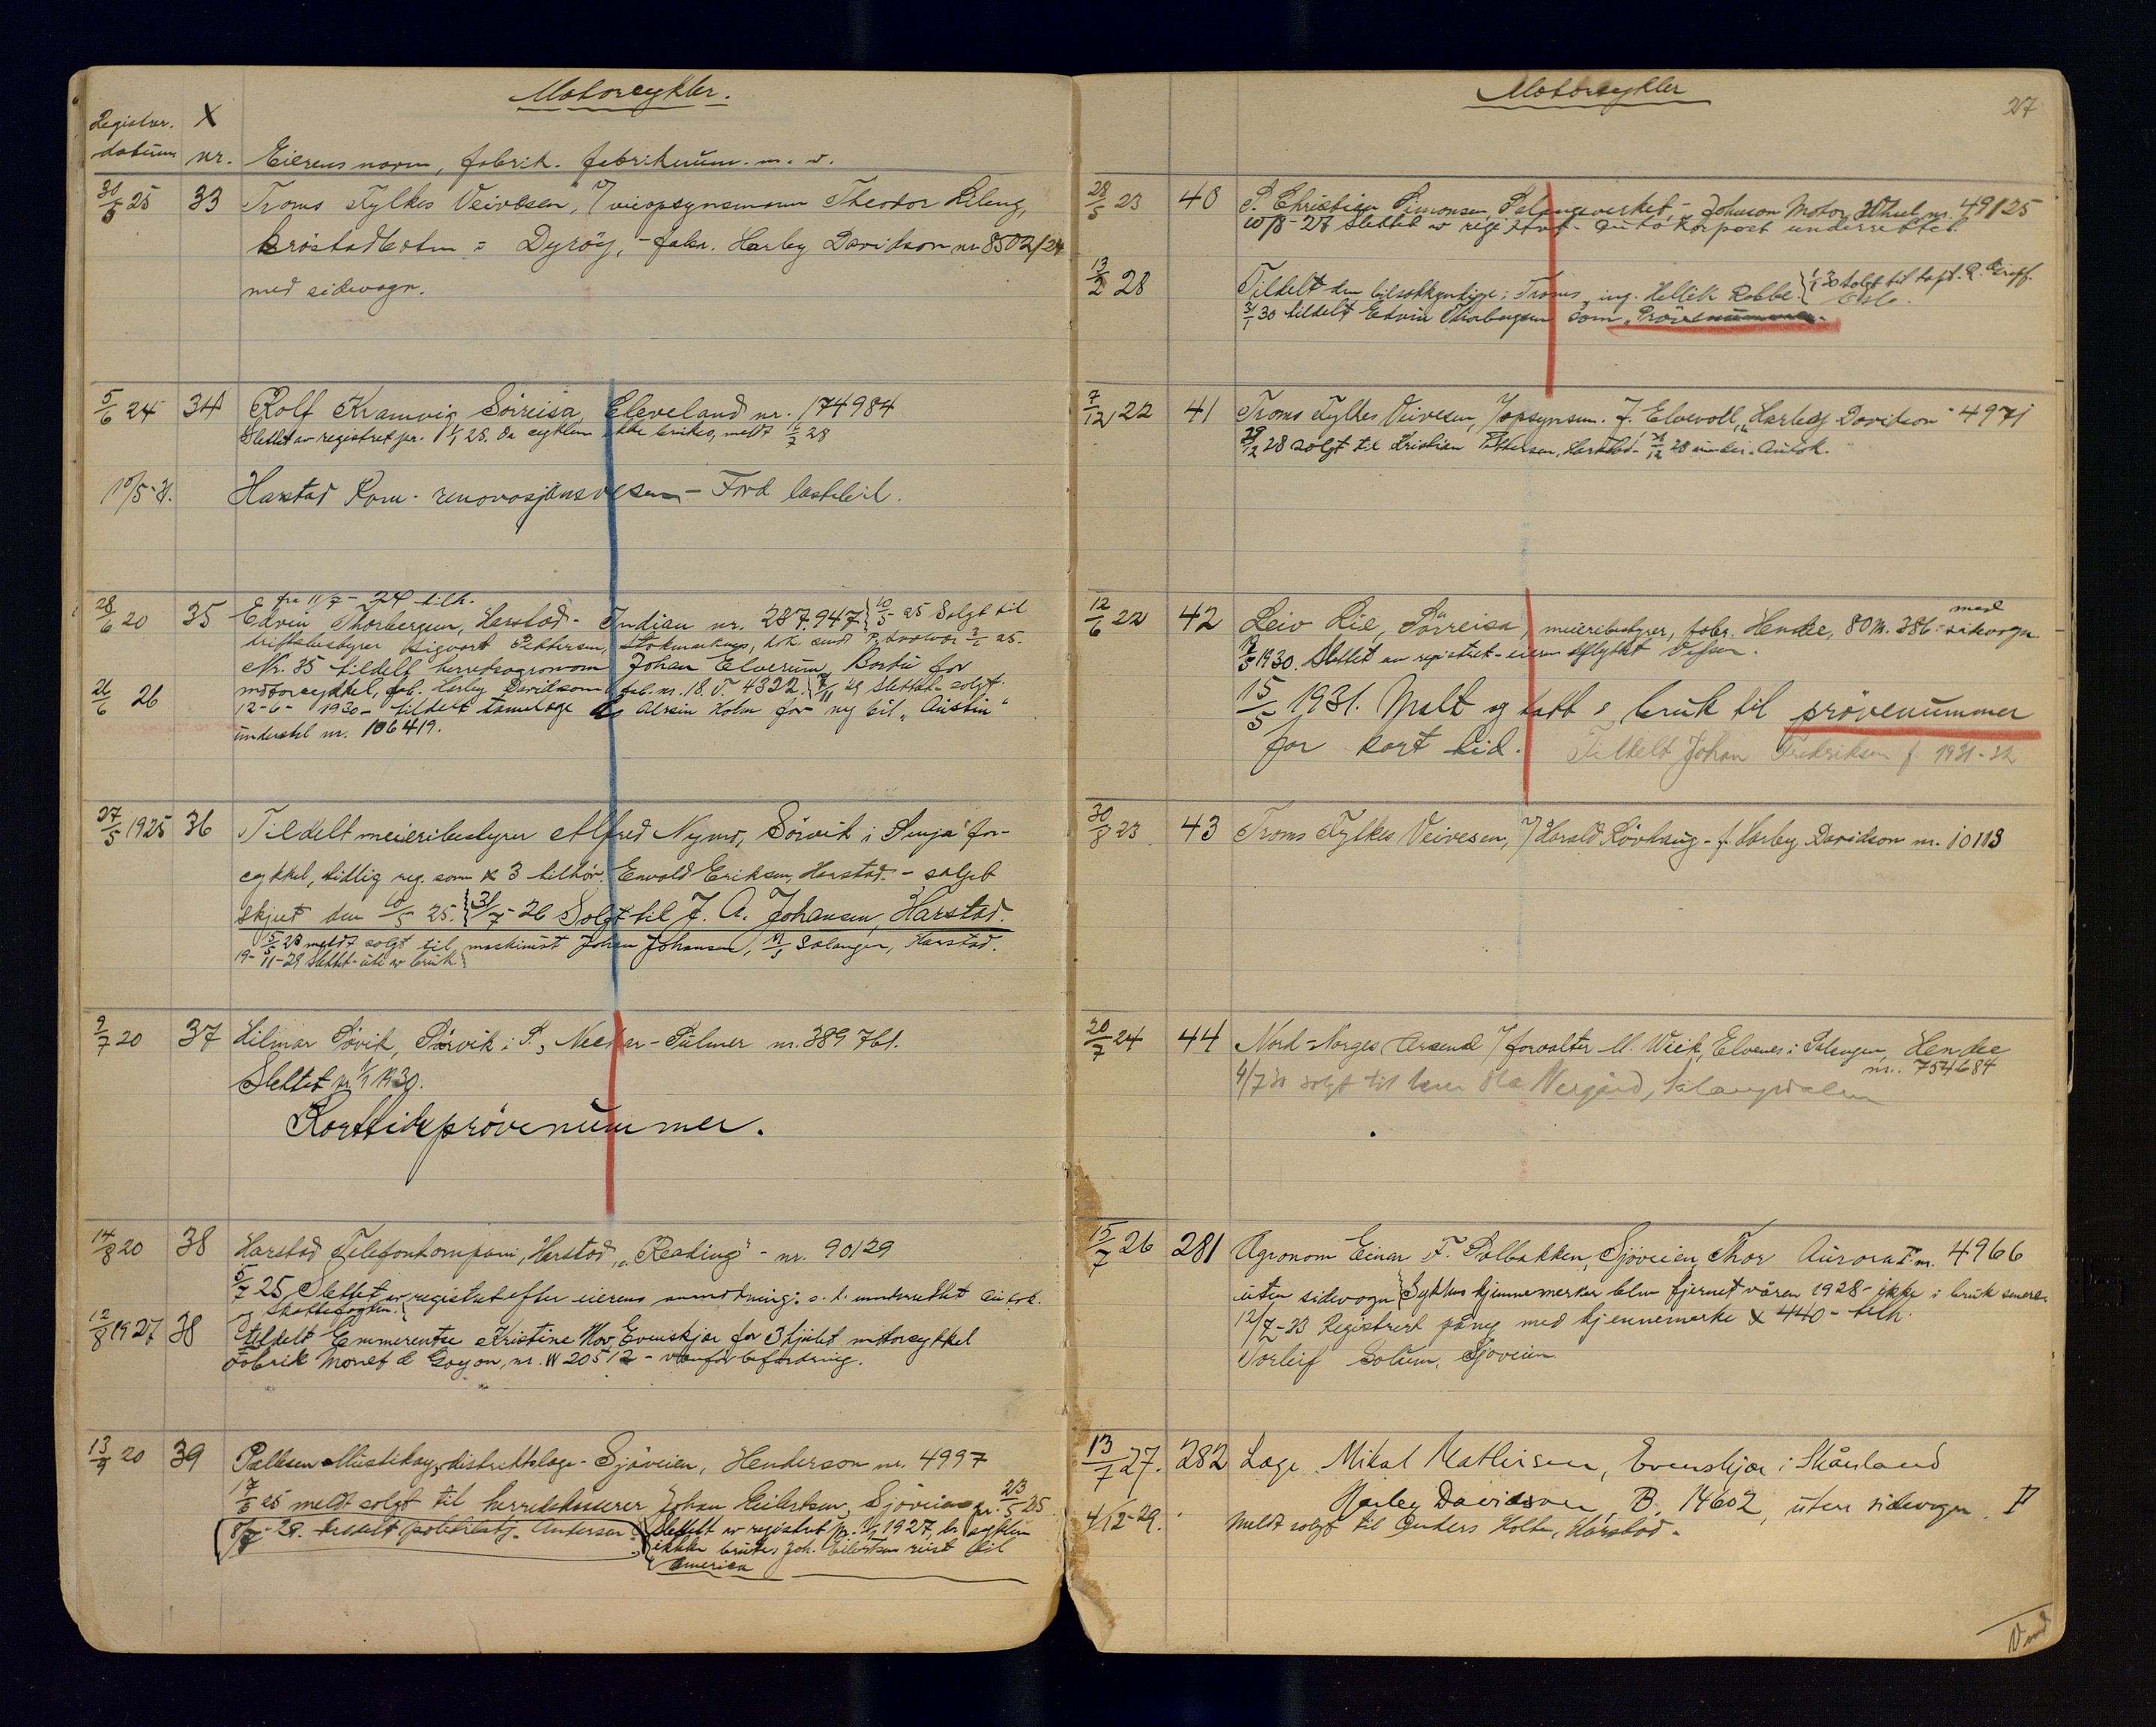 Motorcykler.
Registrer. X
datum nr. Eierens navn, fabrik. fabriknum. m. v.
30/5 25 33 Troms Fylkes Veivesen, v/ veiopsynsmann Theodor Lileng,
Brøstadbotn = Dyrøy, - fabr. Harley Davidson nr 8502/24
med sidevogn.
5/6 24 34 Rolf Kramvig Sörreisa, Cleveland nr. 174984
Slettet av registret pr. 1/1 28. Da cyklen ikke brukes, meldt 28
10/5-31. Harstad Kom. renovasjonsvesen - Ford lastebil.
fra 11/7 - 24 tilh.
28/6 20 35 Edvin Thorbergsen, Harstad - Indian nr. 287.947 } 10/5 25 Solgt til
driftsbestyrer Sigvart Pettersen, Stokmarknes,
Nr. 35 tildelt herredsagronom Johan Elverum, Bardu for
26/6 26 motorcykkel, fab. Harley Davidson, fab. nr. 18. T. 4322. 7/11 29 Slettet - solgt.
12-6-1930 - tildelt tannlæge Alvin Holm for ny bil "Austin"
understel nr. 106419.
27/5 1925 36 Tildelt meieribestyrer Alfred Nymo, Sörvik i Senja for
cykkel, tidlig reg. som X 3 tilhör. Ewald Eriksen, Harstad. - salget
skjeet den 10/5 25. } 31/7 - 26 Solgt til J. A. Johansen, Harstad.
15/5 28 meldt solgt til maskinist Johan Johansen, M/S Salangen, Harstad.
19-11-29 slettet - ute av bruk.
9/7 20 37 Hilmar Sövik, Sörvik i S., Neckar - Pulmer nr. 389761.
Slettet pr. 1/1 1930.
Korttidsprövenummer.
14/8 20 38 Harstad Telefonkompani, Harstad, "Reading" - nr. 90129
5/7 25 Slettet av registret efter eierens anmodning: s. d. underrettet autok.
og skattefogden.
12/8 1927 38 tildelt Emmerentse Kristine Hov, Evenskjær for 3 hjulet motorcykkel
Fabrik Monet & Goyon, nr. W 20512 - vanför befordring.
13/9 20 39 Pallesen Mustibay, distriktslæge - Sjöveien, Henderson nr. 4997
17/6 25 meldt solgt til herredskasserer Johan Eilertsen, Sjöveien pr. 23/5 25
8/7-29. tildelt politibetj. Andersen. Slettet av registret pr. 1/1 1927, da cyklen
ikke brukes, Joh. Eilertsen reist til
America
Motorcykler 27
28/5 23 40 P. Christian Simonsen, Salangsverket, - Johnson Motor Wheel nr. 49125
10/8-27 Slettet av registret - autokorpset underrettet
13/2 28 Tildelt den bilsakkyndige i Troms, ing. Hellik Robbe. } 1/1 30 solgt til kapt. R. Graff.
Oslo.
3/1 30 tildelt Edvin Thorbergsen som Prövenummer.
7/12 22 41 Troms Fylkes Veivesen, v/ opsynsm. J. Elvevoll, "Harley Davidson" 4971
29/12 28 solgt til Kristian Pettersen, Harstad - 12 28 under. Autok.
12/6 22 42 Leiv Lie, Sörreisa, meieribestyrer, fabr. Hendee, 80 M. 386 - med sidevogn.
5 1930. Slettet av registret - eieren utflyttet Vefsen.
15/5 1931. Malt og tatt i bruk til prövenummer
for kort tid. Tildelt Johan Fredriksen f. 1931-32
30/8 23 43 Troms Fylkes Veivesen, v/ Harald Lövhaug - f. Harley Davidson nr. 10113
20/7 24 44 Nord-Norges Arsenal v/ forvalter M. Wiik, Elvenes i Salangen, Hendee
nr. 754684
4/7 30 solgt til herr Ola Vergård, Salangsdalen
15/7 26 281 Agronom Einar F. Solbakken, Sjöveien, Thor Aurora F. nr. 4966
uten sidevogn } Syklens kjennemerker blev fjernet våren 1928 - ikke i bruk senere.
12/7-33 Registrert påny med kjennemerke X 440 - tilh.
Torleif Solum, Sjöveien
13/7 27. 282 Læge Mikal Mathisen, Evenskjær i Skånland
Harley Davidson, B, 14602, uten sidevogn. F
4/12-29. Meldt solgt til Anders Holte, Harstad.
Vend